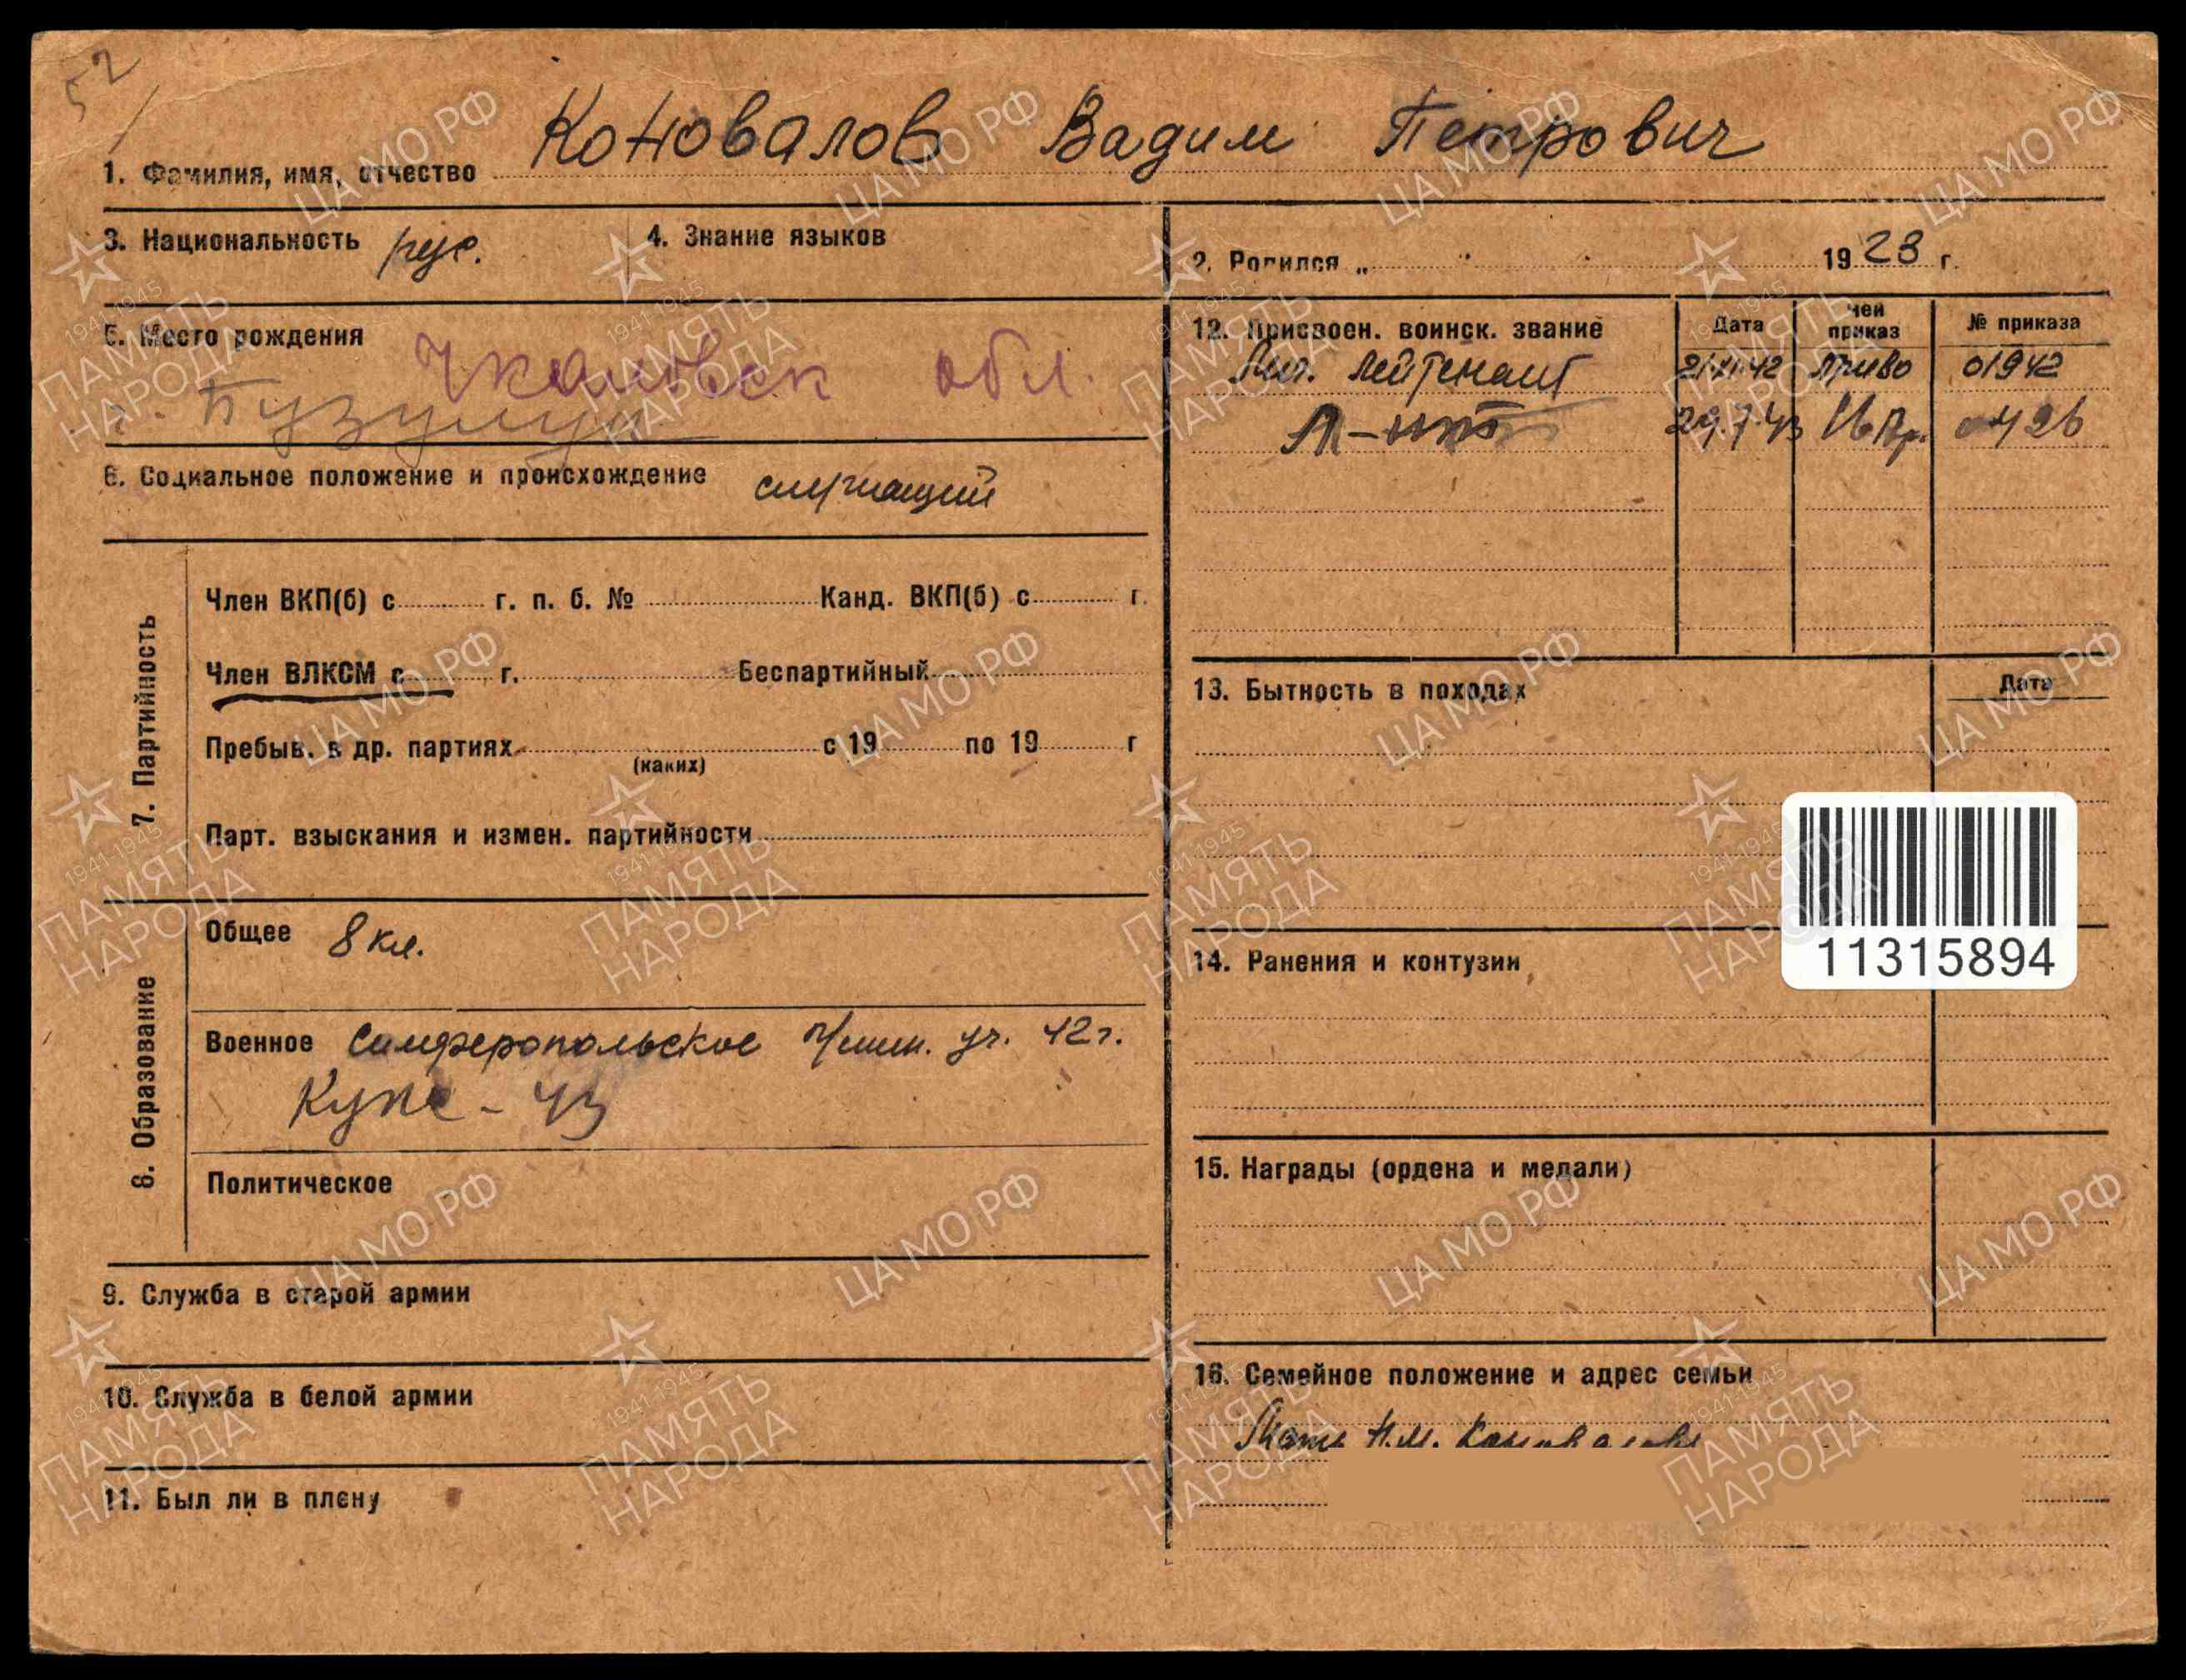 52
1. Фамилия, имя, отчество Коновалов Вадим Петрович
3. Национальность рус.
4. Знание языков
2. Родился „ " 1923 г.
5. Место рождения Чкаловск обл.
г. Бузулук
6. Социальное положение и происхождение служащий
7. Партийность
Член ВКП(б) с г. п. б. № Канд. ВКП(б) с г.
Член ВЛКСМ с г. Беспартийный
Пребыв. в др. партиях с 19 по 19 г
(каких)
Парт. взыскания и измен. партийности
8. Образование
Общее 8 кл.
Военное Симферопольское п/мин. уч. 42 г.
43
Политическое
9. Служба в старой армии
10. Служба в белой армии
11. Был ли в плену
12. Присвоен. воинск. звание Дата чей приказ № приказа
Мл. лейтенант 42 ПриВО 01942
Л-нт 29.7.43 0426
13. Бытность в походах Дата
11315894
14. Ранения и контузии
15. Награды (ордена и медали)
16. Семейное положение и адрес семьи
Мать Н.М. Коновалова
ЦА МО РФ
1941-1945
ПАМЯТЬ
НАРОДА